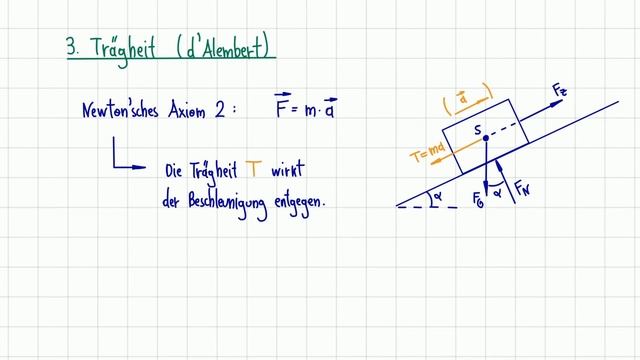 3. Trägheit (d'Alembert)
Newton'sches Axiom 2: F = m·a
Die Trägheit T wirkt
der Beschleunigung entgegen.
(a)
F_Z
S
T=ma
α
F_G
α
F_N